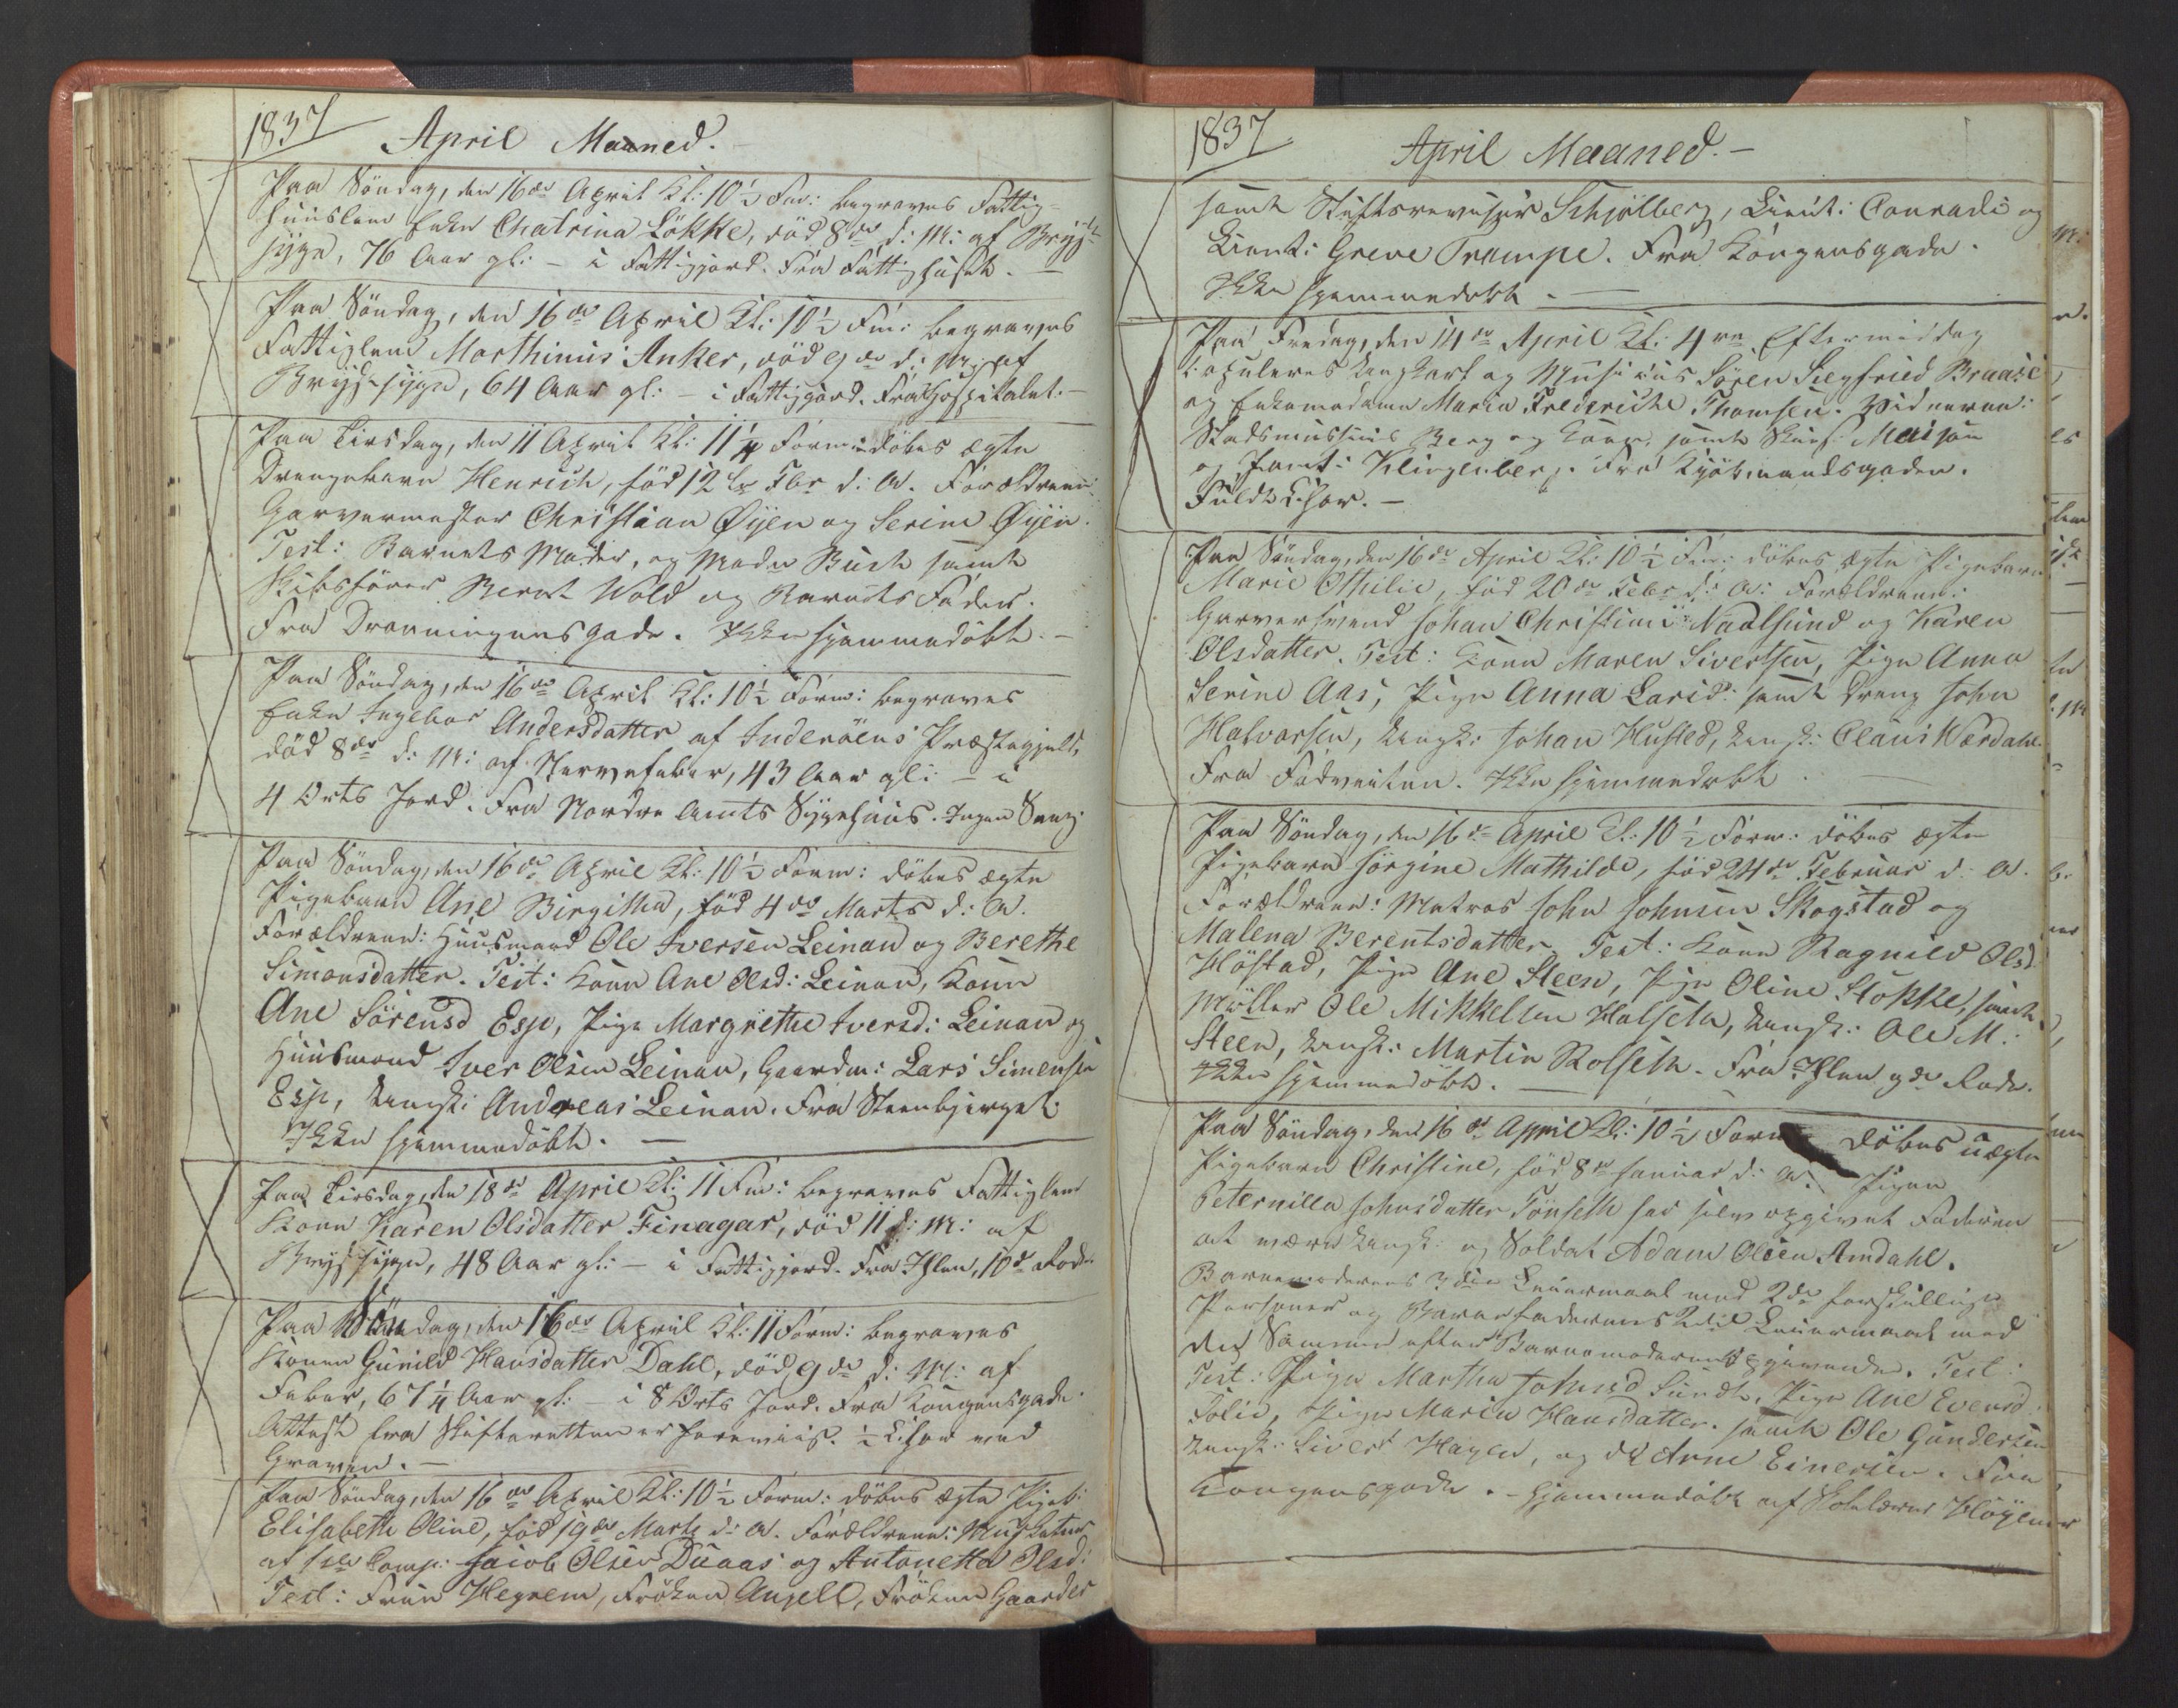 1837 April Maaned.
Paa Söndag, den 16de April Kl: 10½ Fm: begraves Fattig-
huuslem Enke Chatrina Lökke, död 8de d: M: af Bryst
syge, 76 Aar gl: – i Fattigjord. Fra Fattighuset. –
Paa Söndag, den 16de April Kl: 10½ Fm: begraves
Fattiglem Marthinus Anker, död 9de d: M: af
Brystsyge, 64 Aar gl: – i Fattigjord. Fra Hospitalet. –
Paa Tirsdag, den 11 April Kl: 11¼ Form: döbes ægte
Drengebarn Henrich, föd 12 Febr d: A. Forældrene:
Garvermester Christian Öyen og Serine Öyen.
Test: Barnets Moder, og Madm Busch samt
Skibsförer Bernt Wold og Barnets Fader.
Fra Dronningensgade. Ikke hjemmedöbt. –
Paa Söndag, den 16de April Kl: 10½ Form: begraves
Enke Ingebor Andersdatter af Inderöens Præstegjeld,
död 8de d: M: af Nervefeber, 43 Aar gl: – i
4 Orts Jord. Fra Nordre Amts Sygehuus. Ingen Sang.
Paa Söndag, den 16de April Kl: 10½ Form: döbes ægte
Pigebarn Ane Birgitha, föd 4de Marts d: A.
Forældrene: Huusmand Ole Iversen Leinan og Berethe
Simonsdatter. Test: Kone Ane Olsd: Leinan, Kone
Ane Sörensd Esp, Pige Margrethe Iversd: Leinan og
Huusmand Iver Olsen Leinan, Gaardm: Lars Simensen
Esp, Ungk: Andreas Leinan. Fra Steenbjerget.
Ikke hjemmedöbt. –
Paa Tirsdag, den 18de April Kl: 11 Fm: begraves Fattiglem
Kone Karen Olsdatter Finagar, död 11 d: M: af
Brystsyge, 48 Aar gl: – i Fattigjord. Fra Ihlen, 10de Rode.
Paa Söndag, den 16de April Kl: 11 Form: begraves
Konen Gunild Hansdatter Dahl, död 9de d: M: af
Feber, 67¼ Aar gl: – i 8 Orts Jord. Fra Kongensgade.
Attest fra Skifteretten er foreviist. ½ Chor ved
Graven. –
Paa Söndag, den 16de April Kl: 10½ Form: döbes ægte Pigeb:
Elisabeth Oline, föd 19de Marts d: A. Forældrene: Musketeer
af Comp: Jacob Olsen Duaas og Antonetta Olsd:
Test: Frue Hegrem, Fröken Angell, Fröken Gaarder
1837 April Maaned. –
samt Stiftsrevisor Schjölberg, Lieut: Conradi og
Lieut: Greve Trampe. Fra Kongensgade.
Ikke hjemmedöbt. –
Paa Fredag, den 14de April Kl: 4re Eftermiddag
copuleres Ungkarl og Musicus Sören Siegfried Braase
og Enkemadame Maria Frederiche Thomsen. Vidnerne:
Stadsmusicus Berg og Kone, samt Meisan
og Klingenberg. Fra Kjöbmandsgaden.
Fuldt Chor. –
Paa Söndag, den 16de April Kl: 10½ Fm: döbes ægte Pigebarn
Marie Othilie, föd 20de Febr d: A: Forældrene:
Garversvend Johan Christian Naalsund og Karen
Olsdatter. Test: Kone Maren Sivertsen, Pige Anna
Serine Aas, Pige Anna Larsd: samt Dreng John
Halvorsen, Ungk: Johan Husted, Ungk: Claus Værdahl.
Fra Fadveiten. Ikke hjemmedöbt.
Paa Söndag, den 16de April Kl: 10½ Form: döbes ægte
Pigebarn Jörgine Mathilde, föd 24de Februar d: A.
Forældrene: Matros John Johnsen Skogstad og
Malena Berentsdatter. Test: Kone Ragnild Olsd
Höstad, Pige Ane Steen, Pige Oline Stokke, samt
Möller Ole Mikkelsen Halseth, Ungk: Ole M:
Steen, Ungk: Martin Rolseth. Fra Ihlen 9de Rode.
Ikke hjemmedöbt. –
Paa Söndag, den 16de April Kl: 10½ Form döbes uægte
Pigebarn Christine, föd 8de Januar d: A. Pigen
Peternilla Johnsdatter Tönseth har selv opgivet Faderen
at være Ungk: og Soldat Adam Olsen Amdahl.
Barnemoderens 3die Leiermaal med 2de forskjellige
Personer og Barnefaderens 2det Leiermaal med
den Samme efter Barnemoderens Opgivende. Test:
Test: Pige Martha Johnsd Sundt, Pige Ane Evensd
Folie, Pige Maria Hansdatter, samt Ole Gundersen
Ungk: Sivert Hagen, og do Arne Einersen. Fra
Kongensgade. – Hjemmedöbt af Skolelærer Höyem